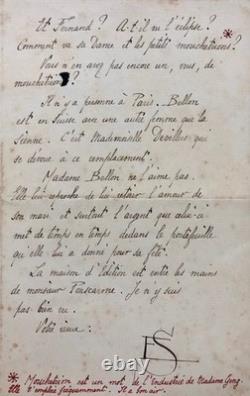 Et Fernand ? A-t-il vu l'éclipse ?
Comment va sa Dame et les petits mouchatrions ? *
Vous n'en avez pas encore un, vous, de
mouchatrion ?
Il n'y a personne à Paris. Bellon
est en Suisse avec une autre femme que la
sienne. C'est Mademoiselle Devillers qui
se dévoue à ce remplacement.
Madame Bellon ne l'aime pas.
Elle lui reproche de lui retirer l'amour de
son mari et surtout l'argent que celui-ci
met de temps en temps dedans le portefeuille
qu'elle lui a donné pour sa fête.
La maison d'Edition est entre les mains
de monsieur . Je n'y suis
pas bien vu.
Votre vieux :
ES
* Mouchatrion est un mot de l'Industrie de Madame
Elle l'emploie fréquemment. Il a son air.
© ebay